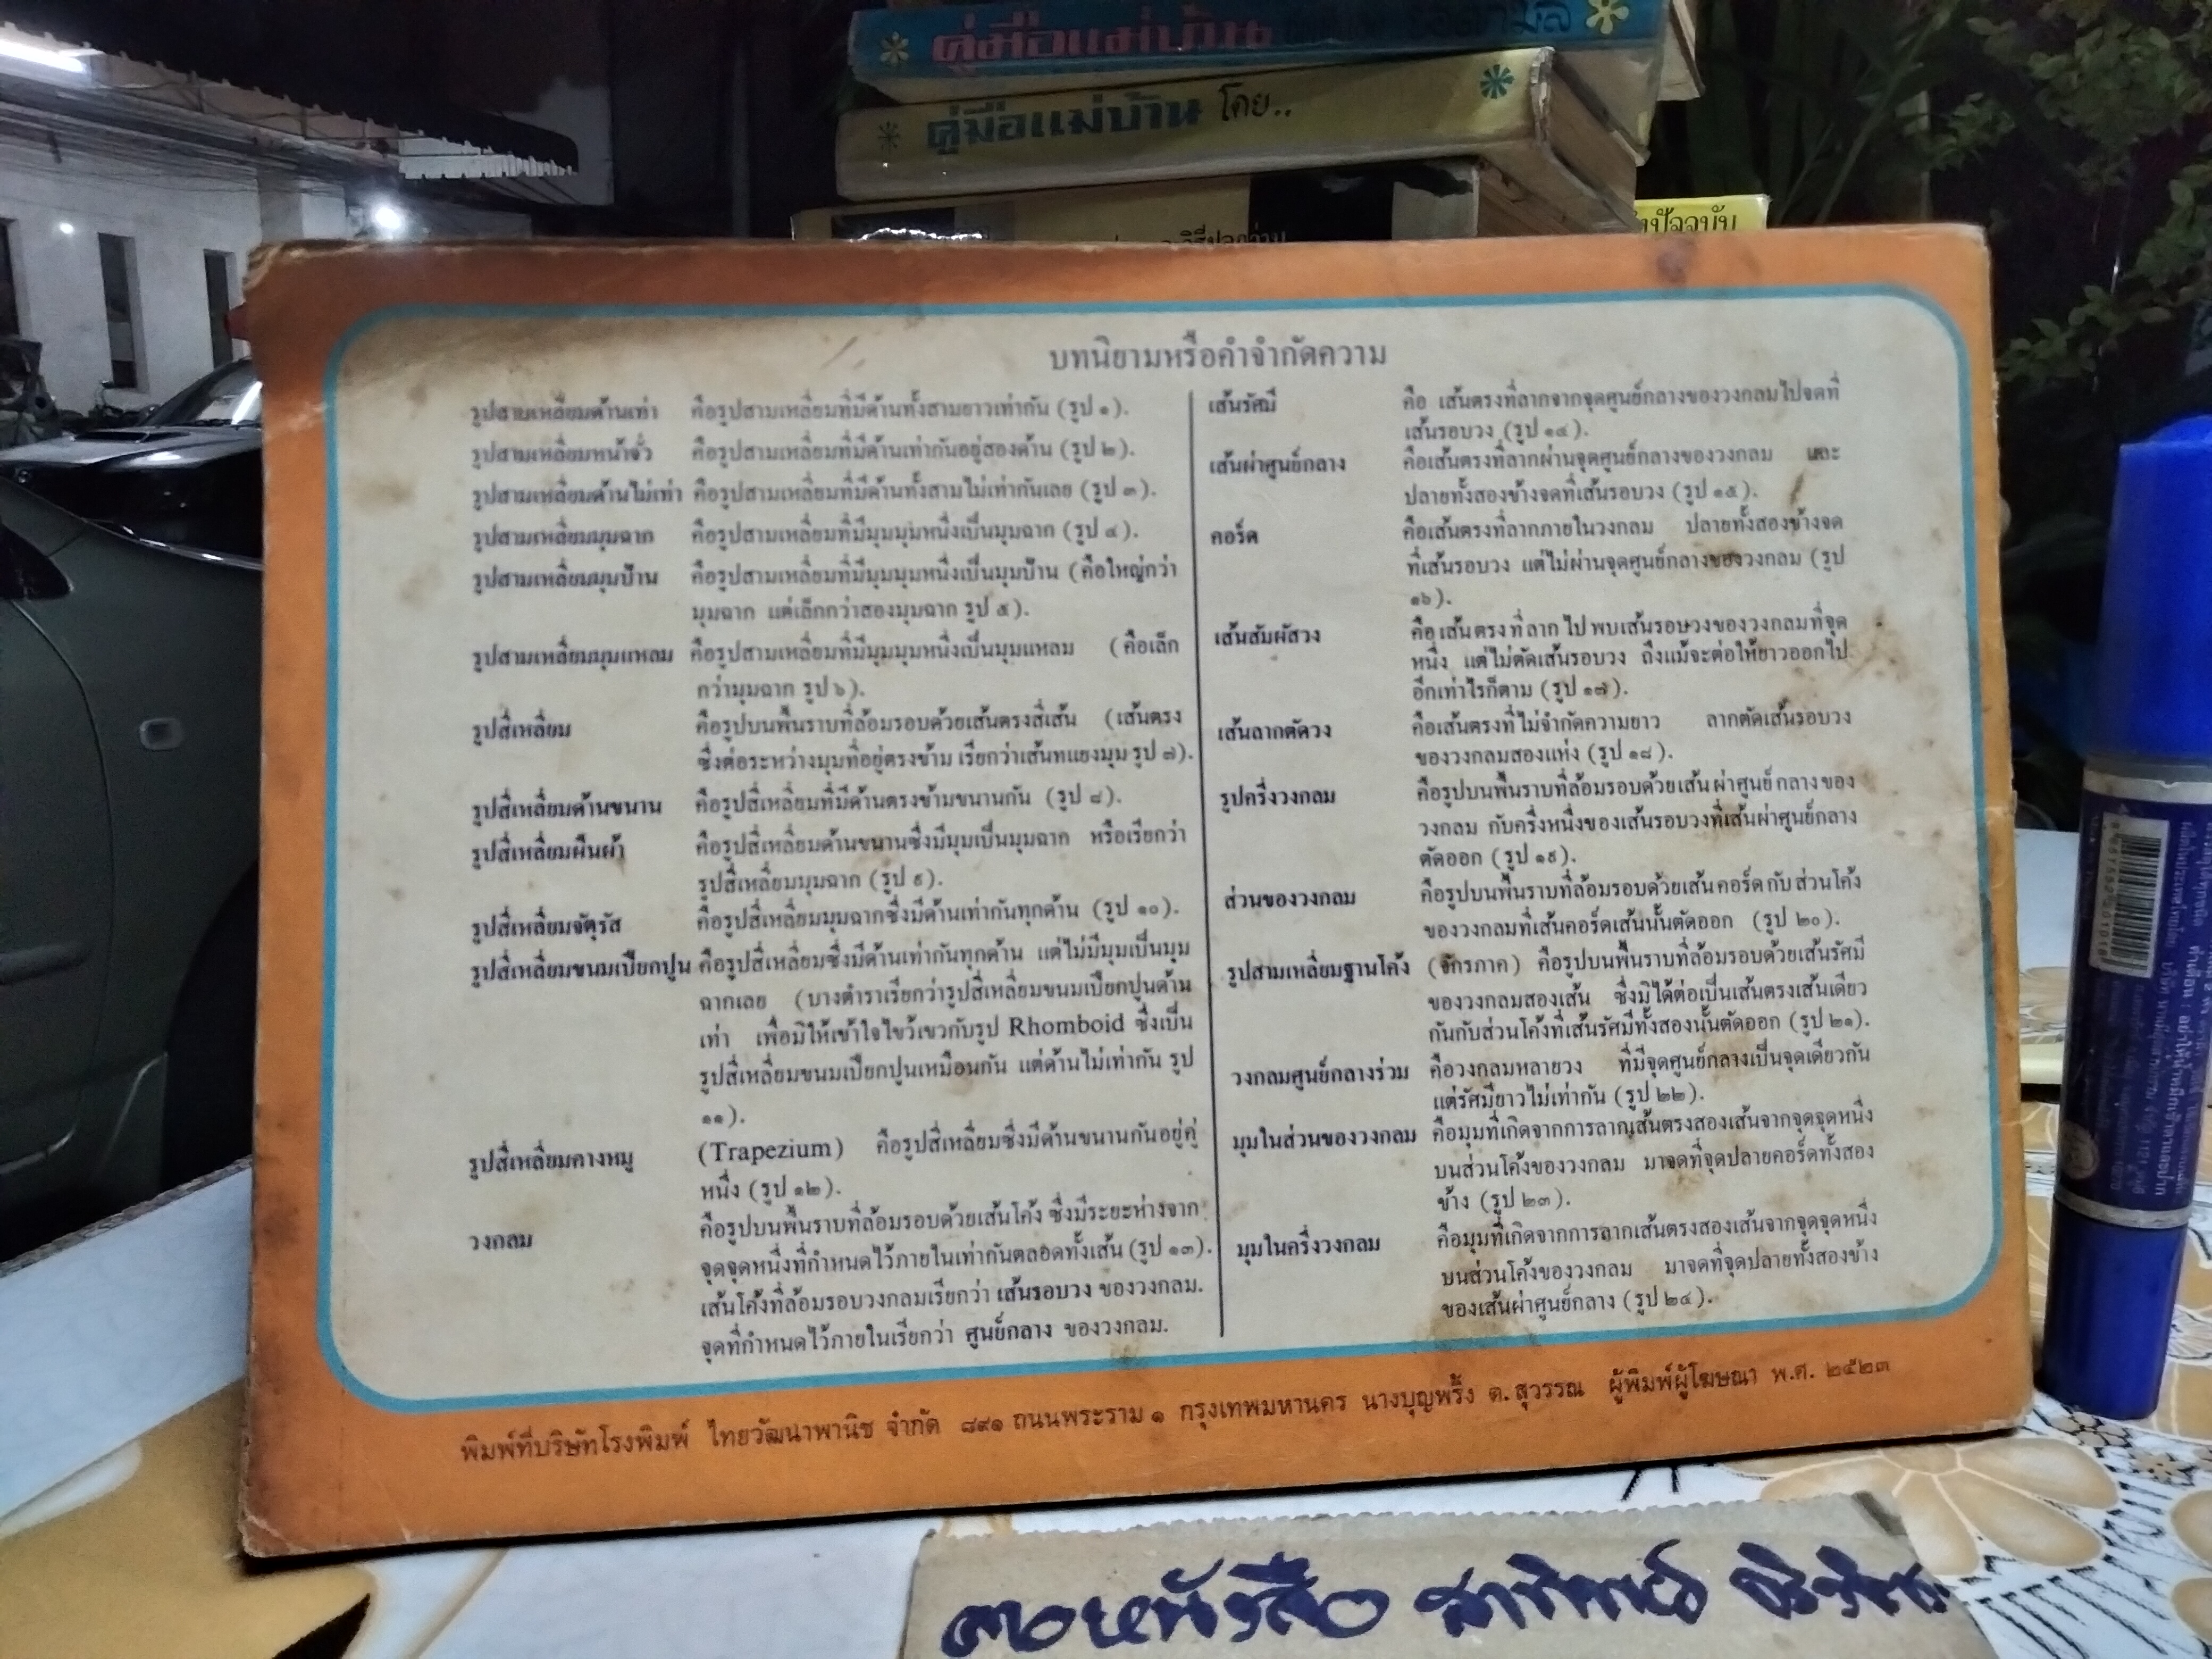 คู่มือแม่บ้าน
คู่มือแม่บ้าน โดย..
ปัจจุบัน
บทนิยามหรือคำจำกัดความ
รูปสามเหลี่ยมด้านเท่า คือรูปสามเหลี่ยมที่มีด้านทั้งสามยาวเท่ากัน (รูป ๑).
รูปสามเหลี่ยมหน้าจั่ว คือรูปสามเหลี่ยมที่มีด้านเท่ากันอยู่สองด้าน (รูป ๒).
รูปสามเหลี่ยมด้านไม่เท่า คือรูปสามเหลี่ยมที่มีด้านทั้งสามไม่เท่ากันเลย (รูป ๓).
รูปสามเหลี่ยมมุมฉาก คือรูปสามเหลี่ยมที่มีมุมมุมหนึ่งเป็นมุมฉาก (รูป ๔).
รูปสามเหลี่ยมมุมป้าน คือรูปสามเหลี่ยมที่มีมุมมุมหนึ่งเป็นมุมป้าน (คือใหญ่กว่า
มุมฉาก แต่เล็กกว่าสองมุมฉาก รูป ๕).
รูปสามเหลี่ยมมุมแหลม คือรูปสามเหลี่ยมที่มีมุมมุมหนึ่งเป็นมุมแหลม (คือเล็ก
กว่ามุมฉาก รูป ๖).
รูปสี่เหลี่ยม คือรูปบนพื้นราบที่ล้อมรอบด้วยเส้นตรงสี่เส้น (เส้นตรง
ซึ่งต่อระหว่างมุมที่อยู่ตรงข้าม เรียกว่าเส้นทแยงมุม รูป ๗).
รูปสี่เหลี่ยมด้านขนาน คือรูปสี่เหลี่ยมที่มีด้านตรงข้ามขนานกัน (รูป ๘).
รูปสี่เหลี่ยมผืนผ้า คือรูปสี่เหลี่ยมด้านขนานซึ่งมีมุมเป็นมุมฉาก หรือเรียกว่า
รูปสี่เหลี่ยมมุมฉาก (รูป ๙).
รูปสี่เหลี่ยมจัตุรัส คือรูปสี่เหลี่ยมมุมฉากซึ่งมีด้านเท่ากันทุกด้าน (รูป ๑๐).
รูปสี่เหลี่ยมขนมเปียกปูน คือรูปสี่เหลี่ยมซึ่งมีด้านเท่ากันทุกด้าน แต่ไม่มีมุมเป็นมุม
ฉากเลย (บางตำราเรียกว่ารูปสี่เหลี่ยมขนมเปียกปูนด้าน
เท่า เพื่อมิให้เข้าใจไขว้เขวกับรูป Rhomboid ซึ่งเป็น
รูปสี่เหลี่ยมขนมเปียกปูนเหมือนกัน แต่ด้านไม่เท่ากัน รูป
๑๑).
รูปสี่เหลี่ยมคางหมู (Trapezium) คือรูปสี่เหลี่ยมซึ่งมีด้านขนานกันอยู่คู่
หนึ่ง (รูป ๑๒).
วงกลม คือรูปบนพื้นราบที่ล้อมรอบด้วยเส้นโค้ง ซึ่งมีระยะห่างจาก
จุดจุดหนึ่งที่กำหนดไว้ภายในเท่ากันตลอดทั้งเส้น (รูป ๑๓).
เส้นโค้งที่ล้อมรอบวงกลมเรียกว่า เส้นรอบวง ของวงกลม.
จุดที่กำหนดไว้ภายในเรียกว่า ศูนย์กลาง ของวงกลม.
เส้นรัศมี คือ เส้นตรงที่ลากจากจุดศูนย์กลางของวงกลมไปจดที่
เส้นรอบวง (รูป ๑๔).
เส้นผ่าศูนย์กลาง คือเส้นตรงที่ลากผ่านจุดศูนย์กลางของวงกลม และ
ปลายทั้งสองข้างจดที่เส้นรอบวง (รูป ๑๕).
คอร์ด คือเส้นตรงที่ลากภายในวงกลม ปลายทั้งสองข้างจด
ที่เส้นรอบวง แต่ไม่ผ่านจุดศูนย์กลางของวงกลม (รูป
๑๖).
เส้นสัมผัสวง คือ เส้นตรงที่ลากไปพบเส้นรอบวงของวงกลมที่จุด
หนึ่ง แต่ไม่ตัดเส้นรอบวง ถึงแม้จะต่อให้ยาวออกไป
อีกเท่าไรก็ตาม (รูป ๑๗).
เส้นลากตัดวง คือเส้นตรงที่ไม่จำกัดความยาว ลากตัดเส้นรอบวง
ของวงกลมสองแห่ง (รูป ๑๘).
รูปครึ่งวงกลม คือรูปบนพื้นราบที่ล้อมรอบด้วยเส้นผ่าศูนย์กลางของ
วงกลม กับครึ่งหนึ่งของเส้นรอบวงที่เส้นผ่าศูนย์กลาง
ตัดออก (รูป ๑๙).
ส่วนของวงกลม คือรูปบนพื้นราบที่ล้อมรอบด้วยเส้นคอร์ดกับส่วนโค้ง
ของวงกลมที่เส้นคอร์ดเส้นนั้นตัดออก (รูป ๒๐).
รูปสามเหลี่ยมฐานโค้ง (จักรภาค) คือรูปบนพื้นราบที่ล้อมรอบด้วยเส้นรัศมี
ของวงกลมสองเส้น ซึ่งมิได้ต่อเป็นเส้นตรงเส้นเดียว
กันกับส่วนโค้งที่เส้นรัศมีทั้งสองนั้นตัดออก (รูป ๒๑).
วงกลมศูนย์กลางร่วม คือวงกลมหลายวง ที่มีจุดศูนย์กลางเป็นจุดเดียวกัน
แต่รัศมียาวไม่เท่ากัน (รูป ๒๒).
มุมในส่วนของวงกลม คือมุมที่เกิดจากการลากเส้นตรงสองเส้นจากจุดจุดหนึ่ง
บนส่วนโค้งของวงกลม มาจดที่จุดปลายคอร์ดทั้งสอง
ข้าง (รูป ๒๓).
มุมในครึ่งวงกลม คือมุมที่เกิดจากการลากเส้นตรงสองเส้นจากจุดจุดหนึ่ง
บนส่วนโค้งของวงกลม มาจดที่จุดปลายทั้งสองข้าง
ของเส้นผ่าศูนย์กลาง (รูป ๒๔).
พิมพ์ที่บริษัทโรงพิมพ์ ไทยวัฒนาพานิช จำกัด ๘๙๑ ถนนพระราม ๑ กรุงเทพมหานคร นางบุญพริ้ง ต. สุวรรณ ผู้พิมพ์ผู้โฆษณา พ.ศ. ๒๕๒๓